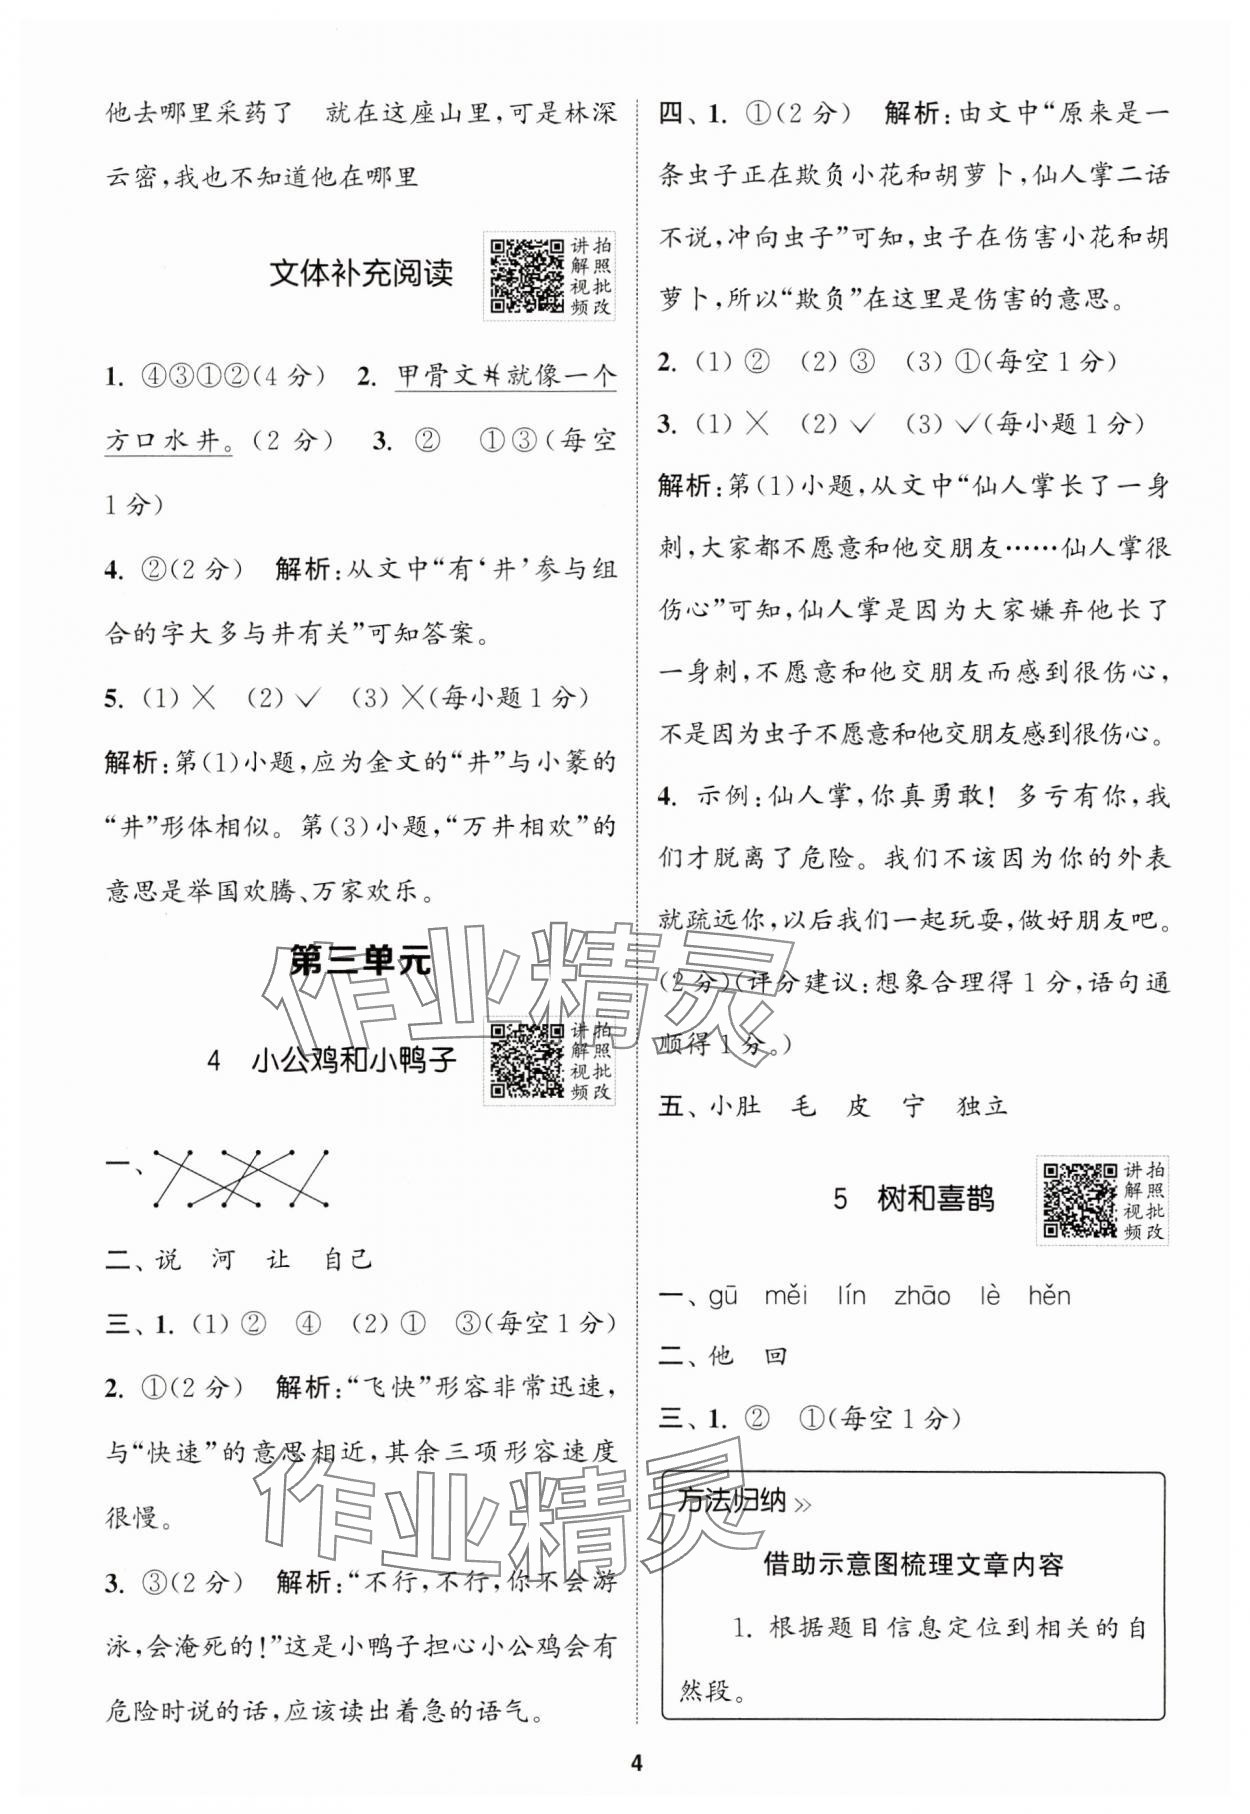 他去哪里采药了　就在这座山里,可是林深
云密,我也不知道他在哪里
文体补充阅读
讲拍
解照
视批
频改
1. ④③①②(4 分)　2. 甲骨文井就像一个
方口水井。(2 分)　3. ②　①③(每空
1 分)
4. ②(2 分)　解析:从文中“有‘井’参与组
合的字大多与井有关”可知答案。
5. (1) ╳　(2) ✓　(3) ╳(每小题 1 分)
解析:第(1)小题,应为金文的“井”与小篆的
“井”形体相似。第(3)小题,“万井相欢”的
意思是举国欢腾、万家欢乐。
第三单元
4　小公鸡和小鸭子
讲拍
解照
视批
频改
一、
二、说　河　让　自己
三、1. (1) ②　④　(2) ①　③(每空 1 分)
2. ①(2 分)　解析:“飞快”形容非常迅速,
与“快速”的意思相近,其余三项形容速度
很慢。
3. ③(2 分)　解析:“不行,不行,你不会游
泳,会淹死的!”这是小鸭子担心小公鸡会有
危险时说的话,应该读出着急的语气。
四、1. ①(2 分)　解析:由文中“原来是一
条虫子正在欺负小花和胡萝卜,仙人掌二话
不说,冲向虫子”可知,虫子在伤害小花和胡
萝卜,所以“欺负”在这里是伤害的意思。
2. (1) ②　(2) ③　(3) ①(每空 1 分)
3. (1) ╳　(2) ✓　(3) ✓(每小题 1 分)
解析:第(1)小题,从文中“仙人掌长了一身
刺,大家都不愿意和他交朋友……仙人掌很
伤心”可知,仙人掌是因为大家嫌弃他长了
一身刺,不愿意和他交朋友而感到很伤心,
不是因为虫子不愿意和他交朋友感到很伤心。
4. 示例:仙人掌,你真勇敢! 多亏有你,我
们才脱离了危险。我们不该因为你的外表
就疏远你,以后我们一起玩耍,做好朋友吧。
(2 分)(评分建议:想象合理得 1 分,语句通
顺得 1 分。)
五、小肚　毛　皮　宁　独立
5　树和喜鹊
讲拍
解照
视批
频改
一、gū　měi　lín　zhāo　lè　hěn
二、他　回
三、1. ②　①(每空 1 分)
方法归纳 »
借助示意图梳理文章内容
1. 根据题目信息定位到相关的自
然段。
4
作业精灵
作业精灵